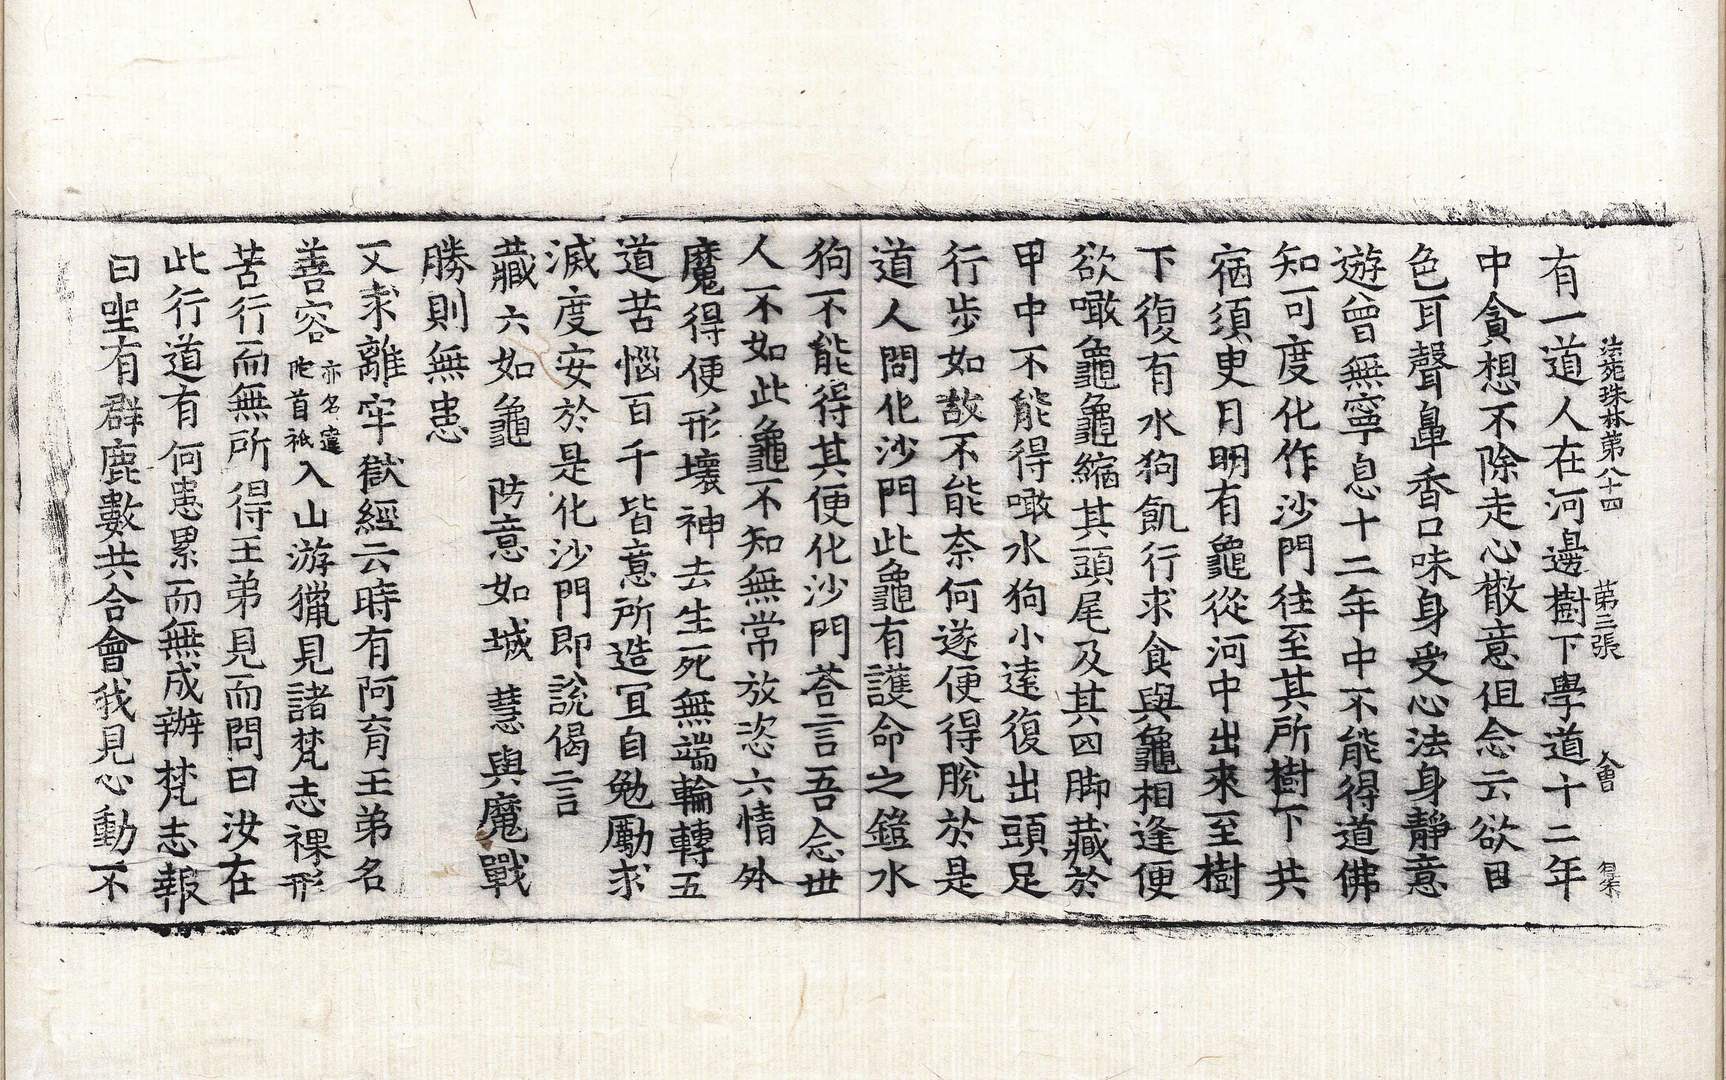 法苑珠林第八十四 第三張 會
有一道人在河邊樹下學道十二年
中貪想不除走心散意但念云欲目
色耳聲鼻香口味身受心法身靜意
遊曾無寧息十二年中不能得道佛
知可度化作沙門往至其所樹下共
宿須臾月明有龜從河中出來至樹
下復有水狗飢行求食與龜相逢便
欲噉龜龜縮其頭尾及其四脚藏於
甲中不能得噉水狗小遠復出頭足
行步如故不能奈何遂便得脫於是
道人問化沙門此龜有護命之鎧水
狗不能得其便化沙門荅言吾念世
人不如此龜不知無常放恣六情外
魔得便形壞神去生死無端輪轉五
道苦惱百千皆意所造宜自勉勵求
滅度安於是化沙門即說偈言
藏六如龜 防意如城 慧與魔戰
勝則無患
又求離牢獄經云時有阿育王弟名
善容亦名違陁首祇入山游獵見諸梵志裸形
苦行而無所得王弟見而問曰汝在
此行道有何患累而無成辦梵志報
曰坐有群鹿數共合會我見心動不